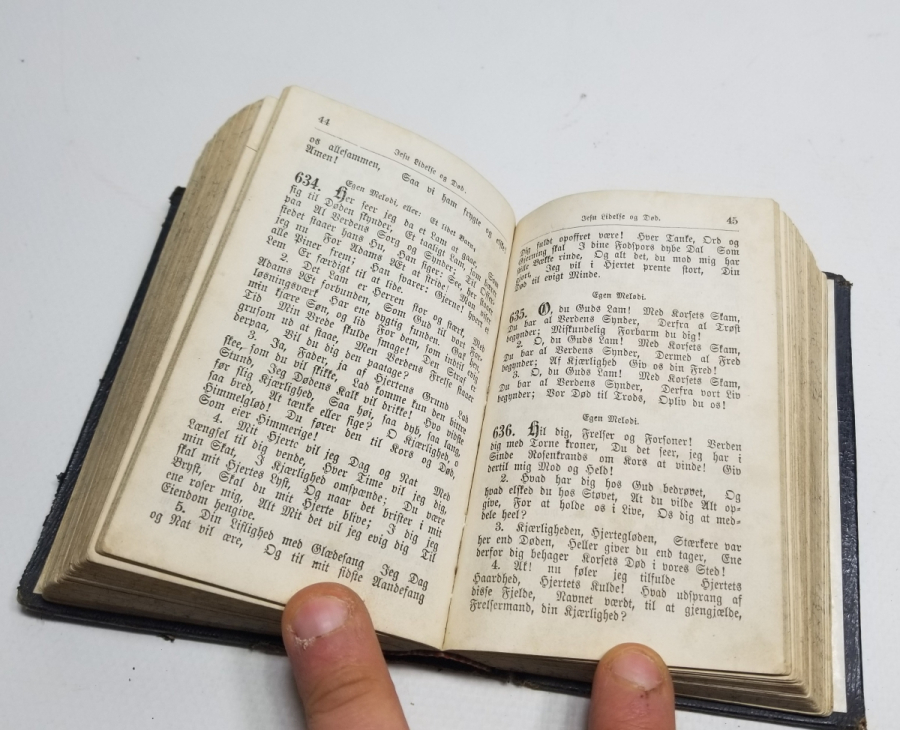 44
Jesu Lidelse og Død.
os allesammen, Saa vi ham frygte og elske
Amen!
Egen Melodi. eller: Et lidet Barn.
634. Her seer jeg da et Lam at gaae, Som
sig til Døden skynder, Et taaligt Lam, som
paa Al Verdens Sorg og Synder;
stedet staaer hans Hu, Han siger: See, her
jeg nu For Adams Æt at stride! Man viser
alle Piner frem; Han svarer: Gjerne,
Lam Er færdigt til at lide.
2. Det Lam er Herren stor og stærk, Med
Adams Æt forbunden, Som Gud til vort
løsningsværk Har ene dygtig funden. Gak
min kjære Søn, og lid For dem, som indtil
Tid Min Vrede skulde smage! Den Straf er
grusom ud at staae, Men Verdens Frelse staaer
derpaa, Vil du dig den paatage?
3. Ja, Fader, ja af Hjertens Grund Lad
skee, som du vil skikke, Lad komme kun den bittre
Stund Jeg Dødens Kalk vil drikke! Hvo vidste
før slig Kjærlighed, Saa høi, saa dyb, saa lang,
saa bred, At tænke eller sige? O Kjærlighed, o
Himmelglød! Du fører den til Kors og Død,
Som eier Himmerige!
4. Mit Hjerte vil jeg Dag og Nat Med
Længsel til dig vende, Hver Time vil jeg dig,
min Skat, I Kjærlighed omspænde; Du være
skal mit Hjertes Lyst, Og naar det brister i mit
Bryst, Skal du mit Hjerte blive; I dig jeg
ene roser mig, Alt Mit det vil jeg evig dig Til
Eiendom hengive.
5. Din Liflighed med Glædesang Jeg Dag
og Nat vil ære, Og til mit sidste Aandefang
Jesu Lidelse og Død.
45
Dig fulde opoffret være! Hver Tanke, Ord og
Gjerning skal I dine Fodspors dybe Dal Som
Bække rinde, Og alt det, du mod mig har
gjort, Jeg vil i Hjertet prente stort, Din
Død til evigt Minde.
Egen Melodi.
635. O, du Guds Lam! Med Korsets Skam,
Du bar al Verdens Synder, Derfra al Trøst
begynder; Miskundelig Forbarm du dig!
2. O, du Guds Lam! Med Korsets Skam,
Du bar al Verdens Synder, Dermed al Fred
begynder; Af Kjærlighed Giv os din Fred!
3. O, du Guds Lam! Med Korsets Skam,
Du bar al Verdens Synder, Derfra vort Liv
begynder; Vor Død til Trods, Opliv du os!
Egen Melodi.
636. Hil dig, Frelser og Forsoner! Verden
dig med Torne kroner, Du det seer, jeg har i
Sinde Rosenkrands om Kors at vinde! Giv
dertil mig Mod og Held!
2. Hvad har dig hos Gud bedrøvet, Og
hvad elsked du hos Støvet, At du vilde Alt op-
give, For at holde os i Live, Os dig at med-
dele heel?
3. Kjærligheden, Hjertegløden, Stærkere var
her end Døden, Heller giver du end tager, Ene
derfor dig behager Korsets Død i vores Sted!
4. Ak! nu føler jeg tilfulde Hjertets
Haardhed, Hjertets Kulde! Hvad udsprang af
disse Fjelde, Navnet værdt, til at gjengjælde,
Frelsermand, din Kjærlighed?